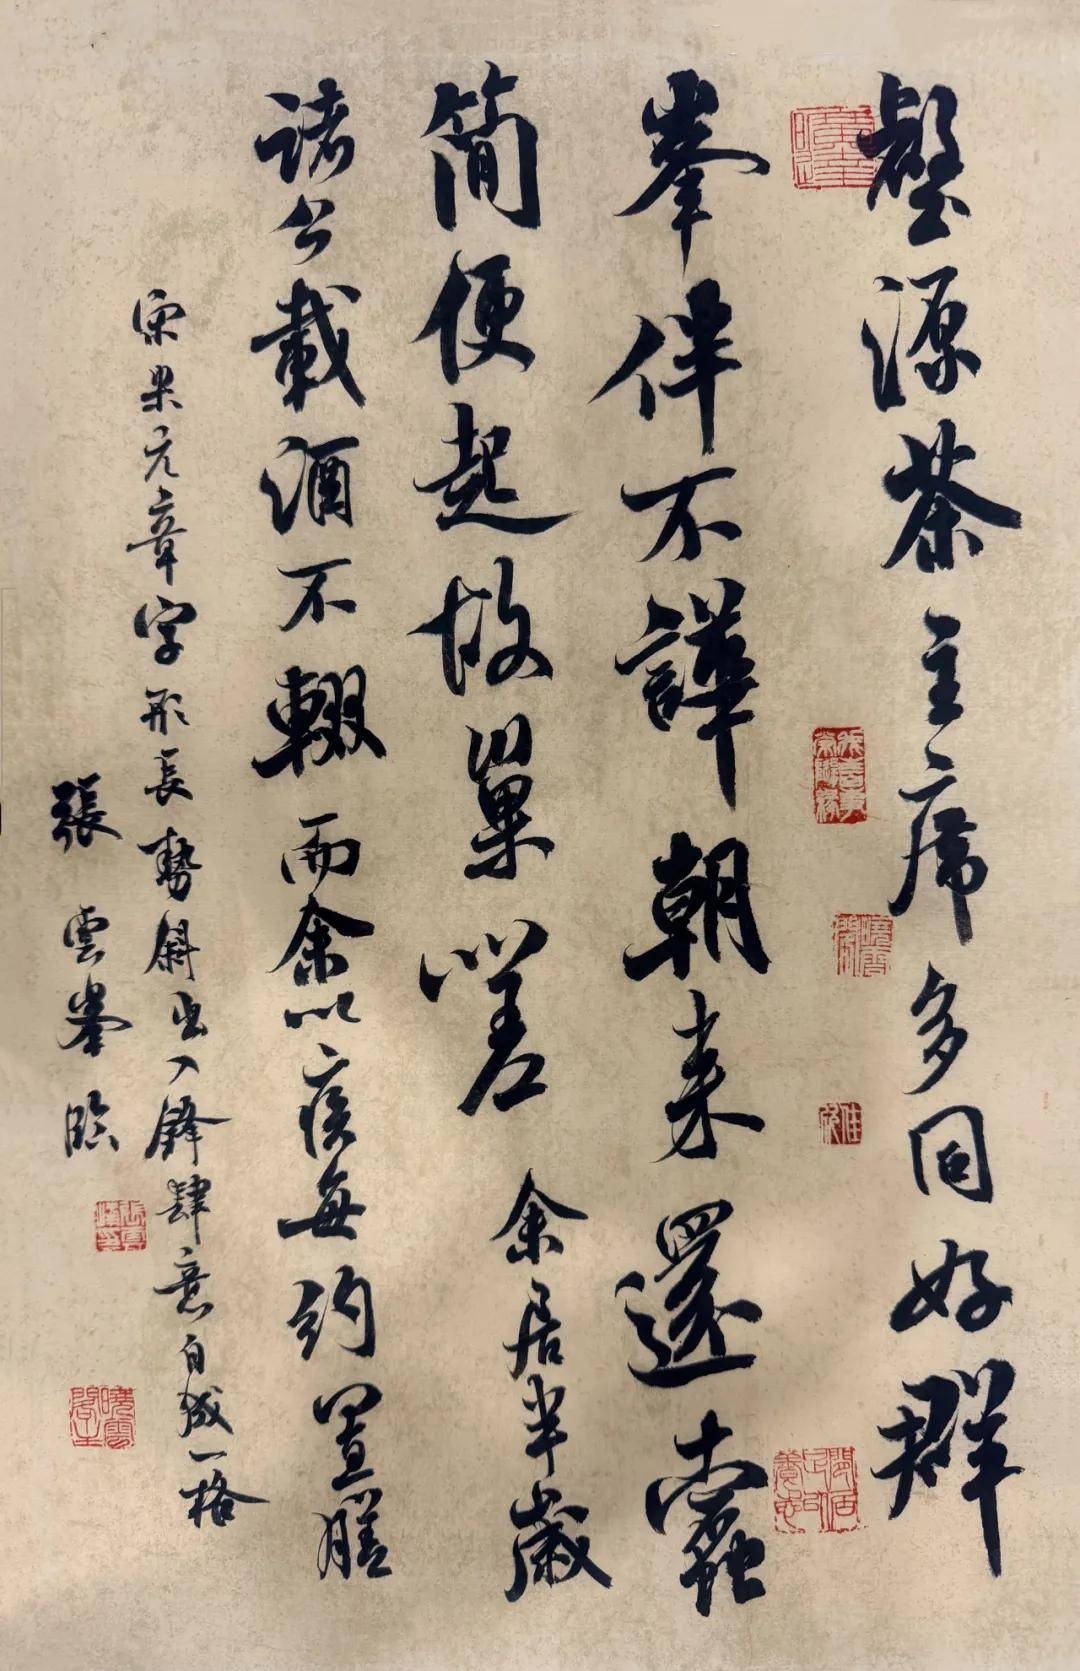 壑源茶主席多同好群
峯伴不譁朝来還蠹
簡便起故巢嗟余居半歲
諸公載酒不輟而余以疾每約置膳
宋米元章字形長勢斜出入鋒肆意自成一格
張雲峯臨